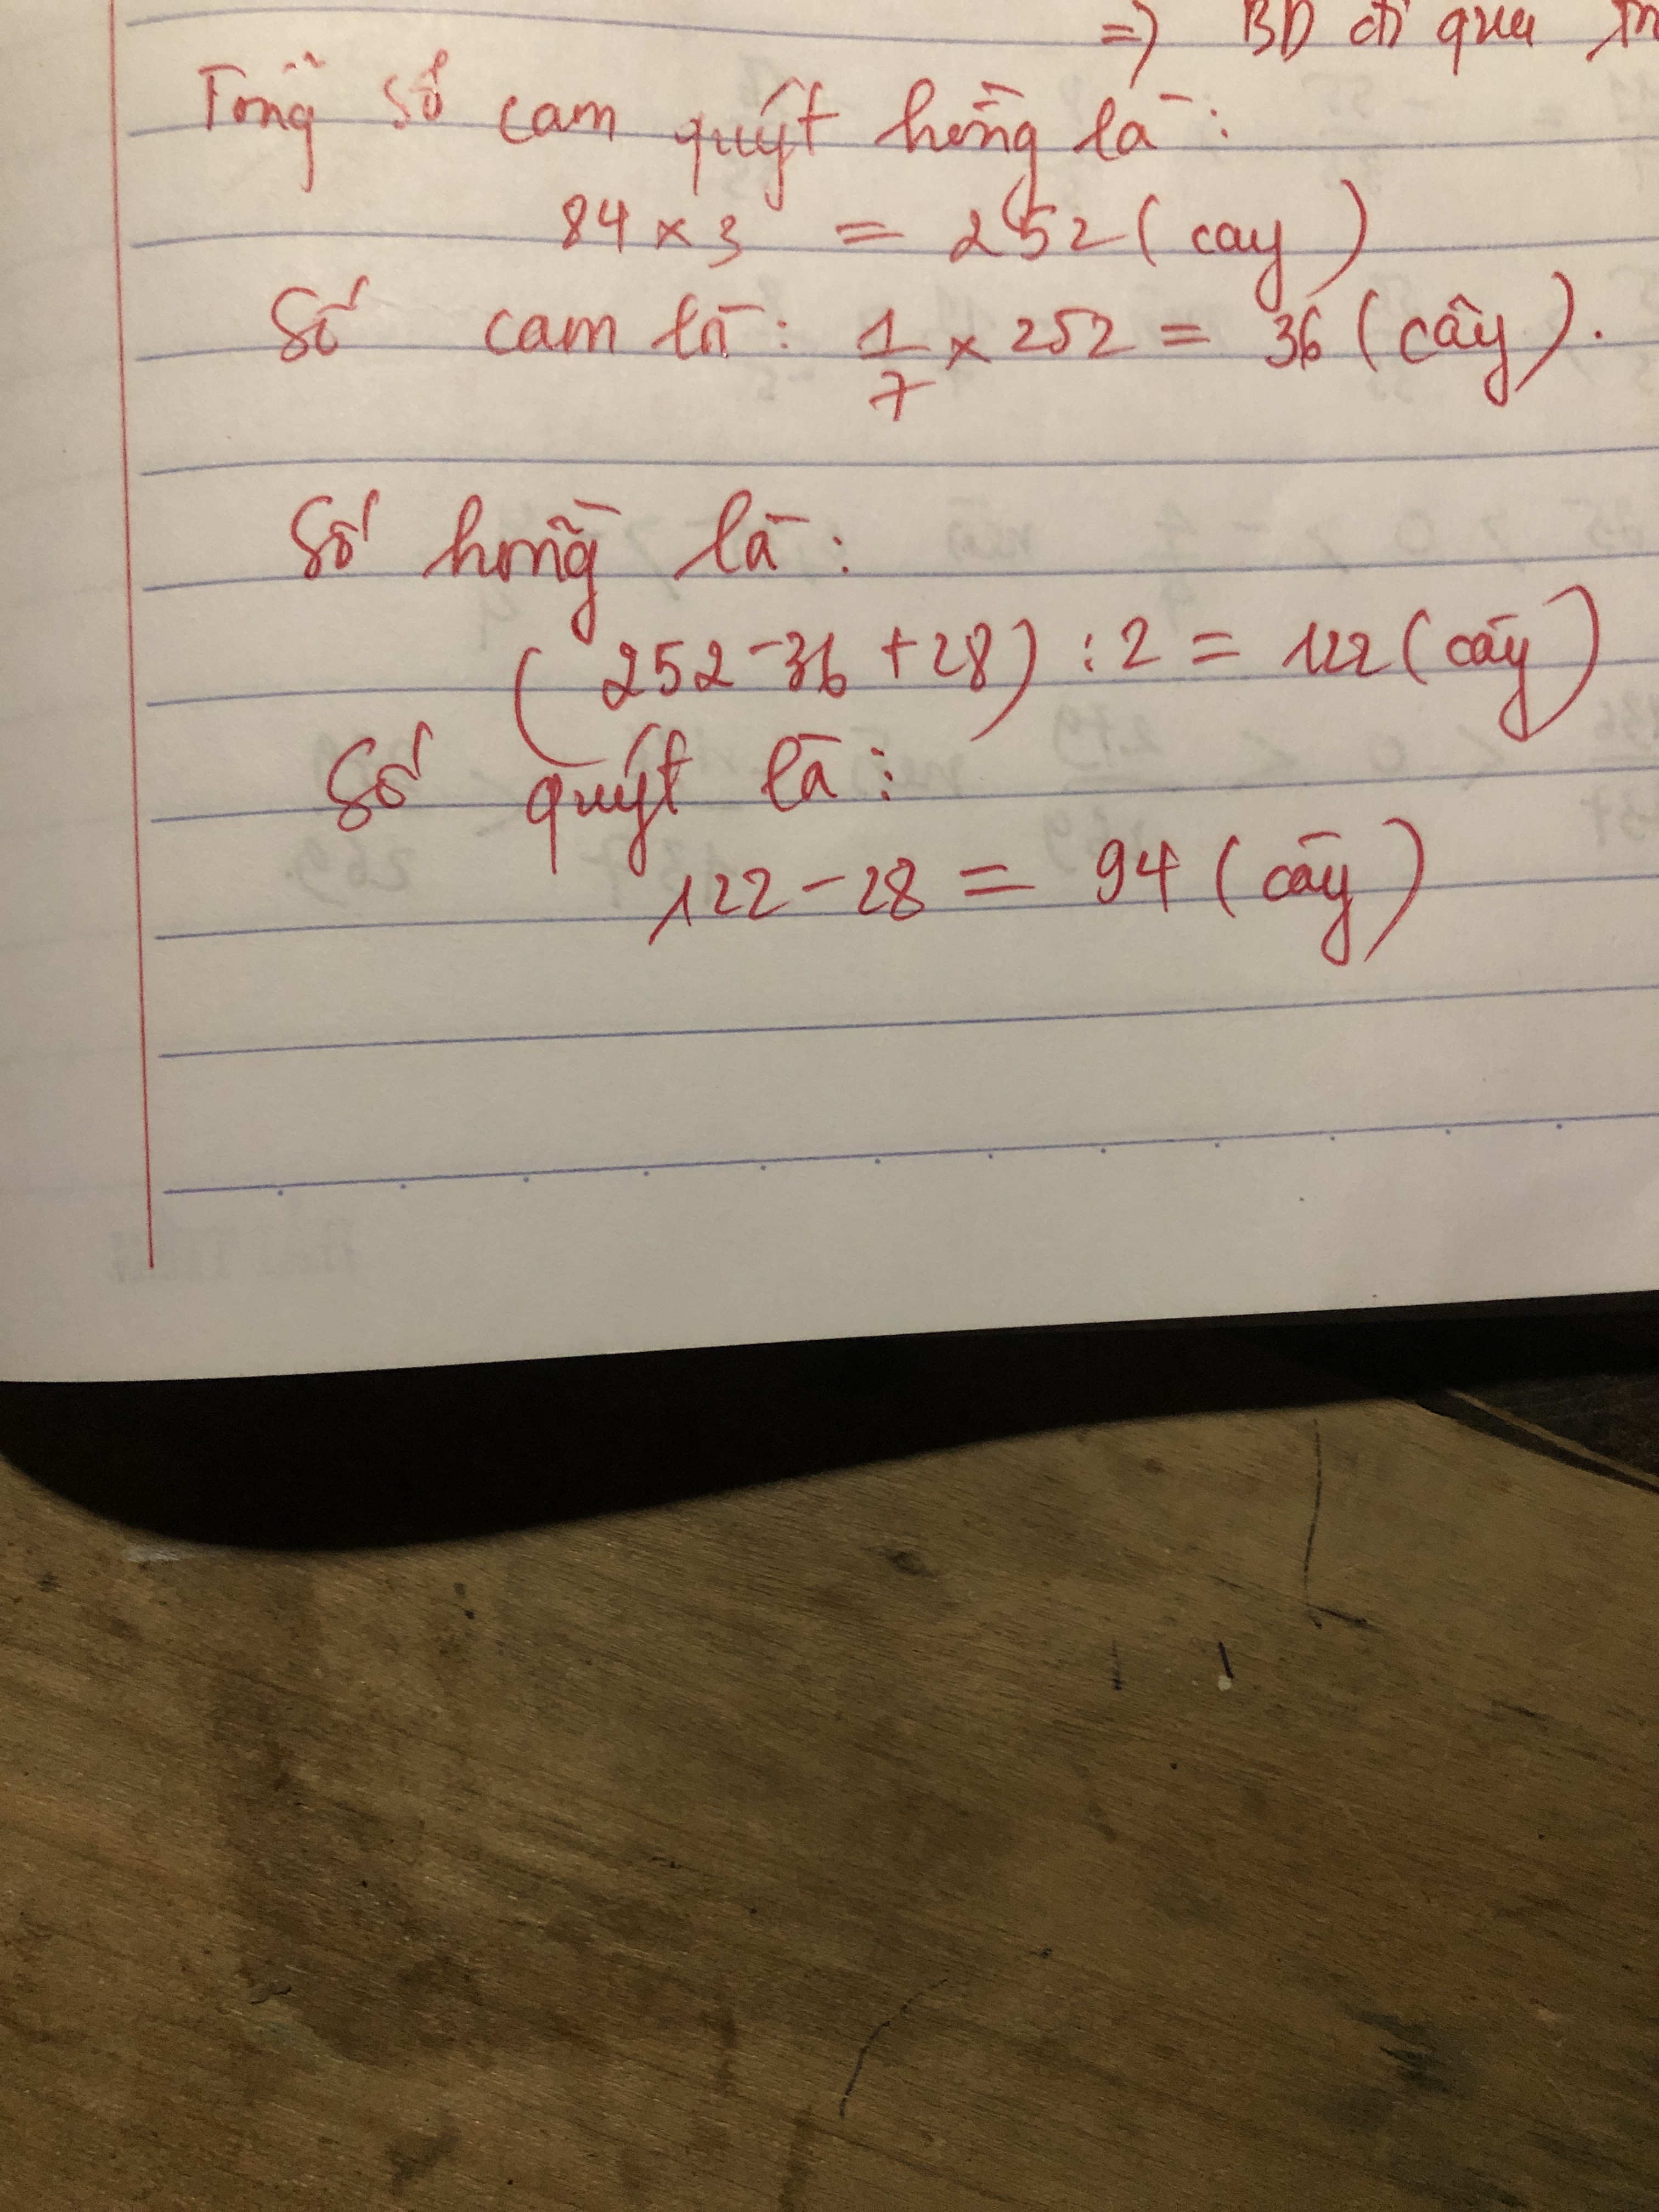 =) BD đi qua
Tổng số cam quýt hồng là :
84 x 3 = 252 ( cay )
Số cam là : 1/7 x 252 = 36 ( cây ).
Số hồng là :
( 252 - 36 + 28 ) : 2 = 122 ( cây )
Số quýt là :
122 - 28 = 94 ( cây )